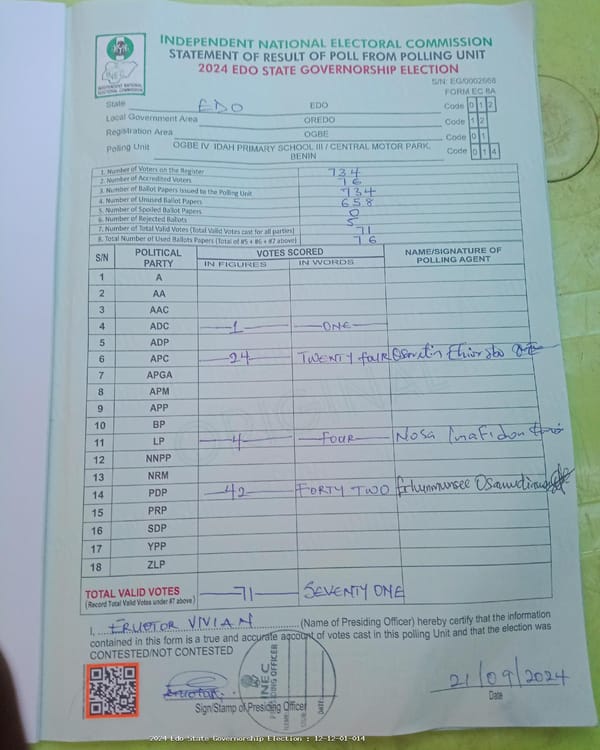 INDEPENDENT NATIONAL ELECTORAL COMMISSION
STATEMENT OF RESULT OF POLL FROM POLLING UNIT
2024 EDO STATE GOVERNORSHIP ELECTION
S/N: EG/0002668
FORM EC 8A
INEC
INDEPENDENT NATIONAL ELECTORAL COMMISSION
State EDO EDO Code 0 1 2
Local Government Area OREDO Code 1 2
Registration Area OGBE Code 0 1
Polling Unit OGBE IV IDAH PRIMARY SCHOOL III / CENTRAL MOTOR PARK, BENIN Code 0 1 4
1. Number of Voters on the Register 734
2. Number of Accredited Voters 76
3. Number of Ballot Papers Issued to the Polling Unit 734
4. Number of Unused Ballot Papers 658
5. Number of Spoiled Ballot Papers 0
6. Number of Rejected Ballots 5
7. Number of Total Valid Votes (Total Valid Votes cast for all parties) 71
8. Total Number of Used Ballots Papers (Total of #5 + #6 + #7 above) 76
S/N POLITICAL PARTY VOTES SCORED NAME/SIGNATURE OF POLLING AGENT
IN FIGURES IN WORDS
1 A
2 AA
3 AAC
4 ADC 1 ONE
5 ADP
6 APC 24 TWENTY four
7 APGA
8 APM
9 APP
10 BP
11 LP 4 FOUR Nosa Inafidon
12 NNPP
13 NRM
14 PDP 42 FORTY TWO
15 PRP
16 SDP
17 YPP
18 ZLP
TOTAL VALID VOTES 71 SEVENTY ONE
(Record Total Valid Votes under #7 above)
I, ERUOTOR VIVIAN (Name of Presiding Officer) hereby certify that the information
contained in this form is a true and accurate account of votes cast in this polling Unit and that the election was
CONTESTED/NOT CONTESTED
INEC
PRESIDING OFFICER
NAME:
SIGN:
DATE:
21/09/2024
Sign/Stamp of Presiding Officer Date
2024 Edo State Governorship Election : 12-12-01-014